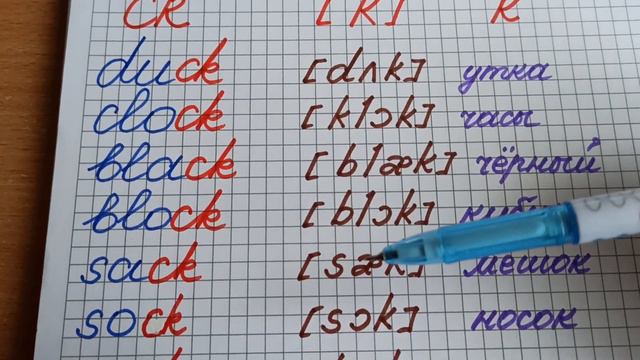 ck [k] к
duck [dʌk] утка
clock [klɔk] часы
black [blæk] чёрный
block [blɔk]
sack [sæk] мешок
sock [sɔk] носок